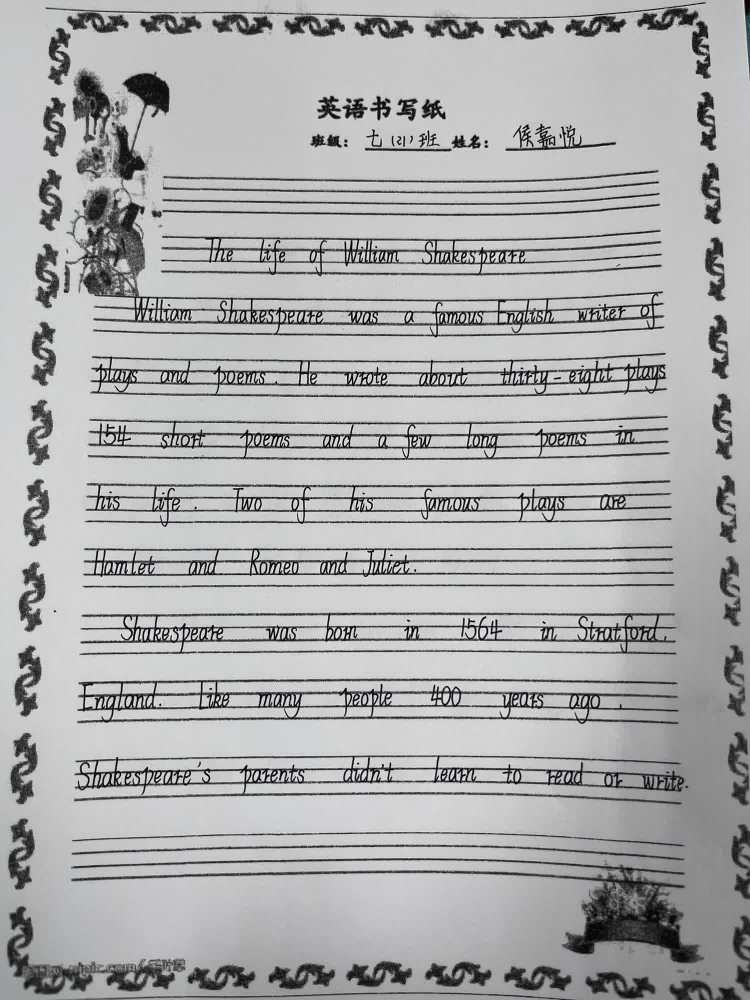 英语书写纸
班级： 七（21）班 姓名： 侯嘉悦
The life of William Shakespeare
William Shakespeare was a famous English writer of
plays and poems. He wrote about thirty-eight plays
154 short poems and a few long poems in
his life. Two of his famous plays are
Hamlet and Romeo and Juliet.
Shakespeare was born in 1564 in Stratford,
England. Like many people 400 years ago,
Shakespeare's parents didn't learn to read or write.